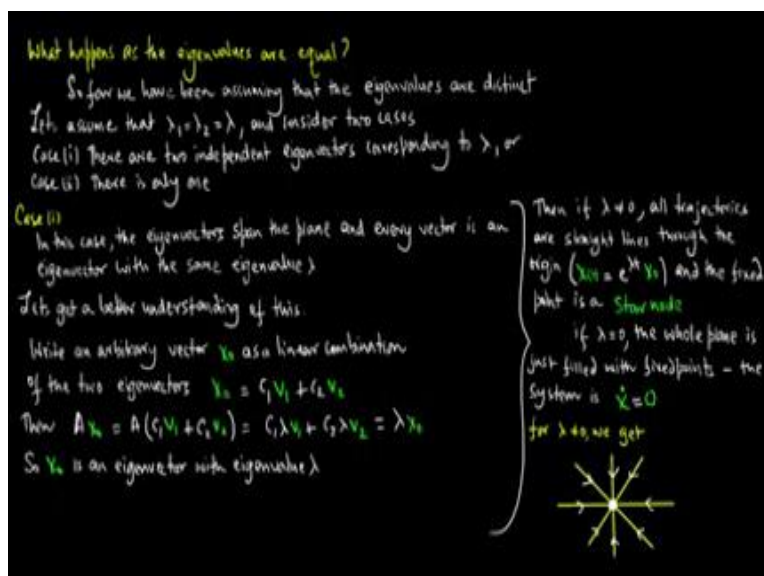 What happens as the eigenvalues are equal?
So far we have been assuming that the eigenvalues are distinct
Lets assume that λ₁=λ₂=λ, and consider two cases
Case (i) There are two independent eigenvectors corresponding to λ, or
Case (ii) There is only one
Case (i)
In this case, the eigenvectors span the plane and every vector is an
eigenvector with the same eigenvalue λ
Lets get a better understanding of this.
Write an arbitrary vector x₀ as a linear combination
of the two eigenvectors x₀ = c₁v₁ + c₂v₂
Then Ax₀ = A(c₁v₁ + c₂v₂) = c₁λv₁ + c₂λv₂ = λx₀
So x₀ is an eigenvector with eigenvalue λ
Then if λ≠0, all trajectories
are straight lines through the
origin (x(t) = e^λt x₀) and the fixed
point is a Star node
if λ=0, the whole plane is
just filled with fixed points – the
system is ẋ=0
for λ≠0, we get